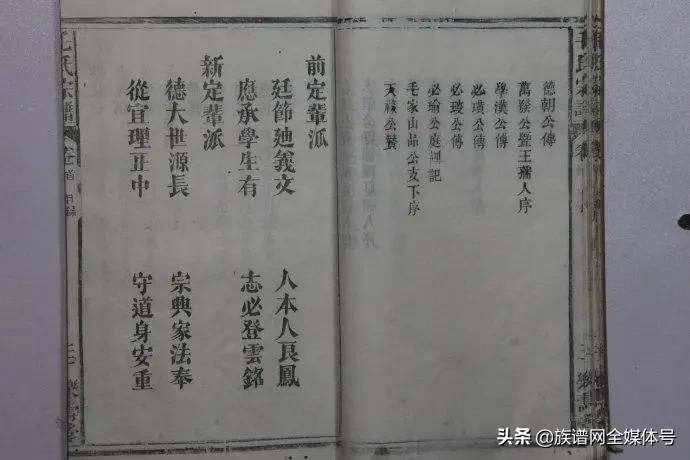 德朝公傳
萬鬆公暨王孺人序
學漢公傳
必璜公傳
必琰公傳
必瑜公庭訓記
毛家山品公支下序
天禄公贊
前定輩派
廷節廸義文 人本人良鳳
應承學生有 志必登雲銘
新定輩派
德大世源長 宗興家法奉
從宜理正中 守道身安重
毛氏宗譜
卷首 目録
头条 @族谱网全媒体号